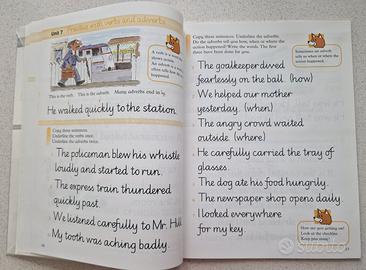 Unit 7 Practise with verbs and adverbs
A verb is a
shows action.
An adverb is a
tells how the action
happened.
This is the verb. This is the adverb. Many adverbs end in ly.
He walked quickly to the station.
Copy these sentences.
Underline the verbs once.
Underline the adverbs twice.
The policeman blew his whistle
loudly and started to run.
The express train thundered
quickly past.
We listened carefully to Mr. Hill.
My tooth was aching badly.
Copy these sentences. Underline the adverbs.
Do the adverbs tell you how, when or where the
action happened? Write the words. The first
three have been done for you.
Sometimes an adverb
tells us when or where the
action happened.
The goalkeeper dived
fearlessly on the ball. (how)
We helped our mother
yesterday. (when)
The angry crowd waited
outside. (where)
He carefully carried the tray of
glasses.
The dog ate his food hungrily.
The newspaper shop opens daily.
I looked everywhere
for my key.
How are you getting on?
Look at the checklist.
Keep you going!
subito